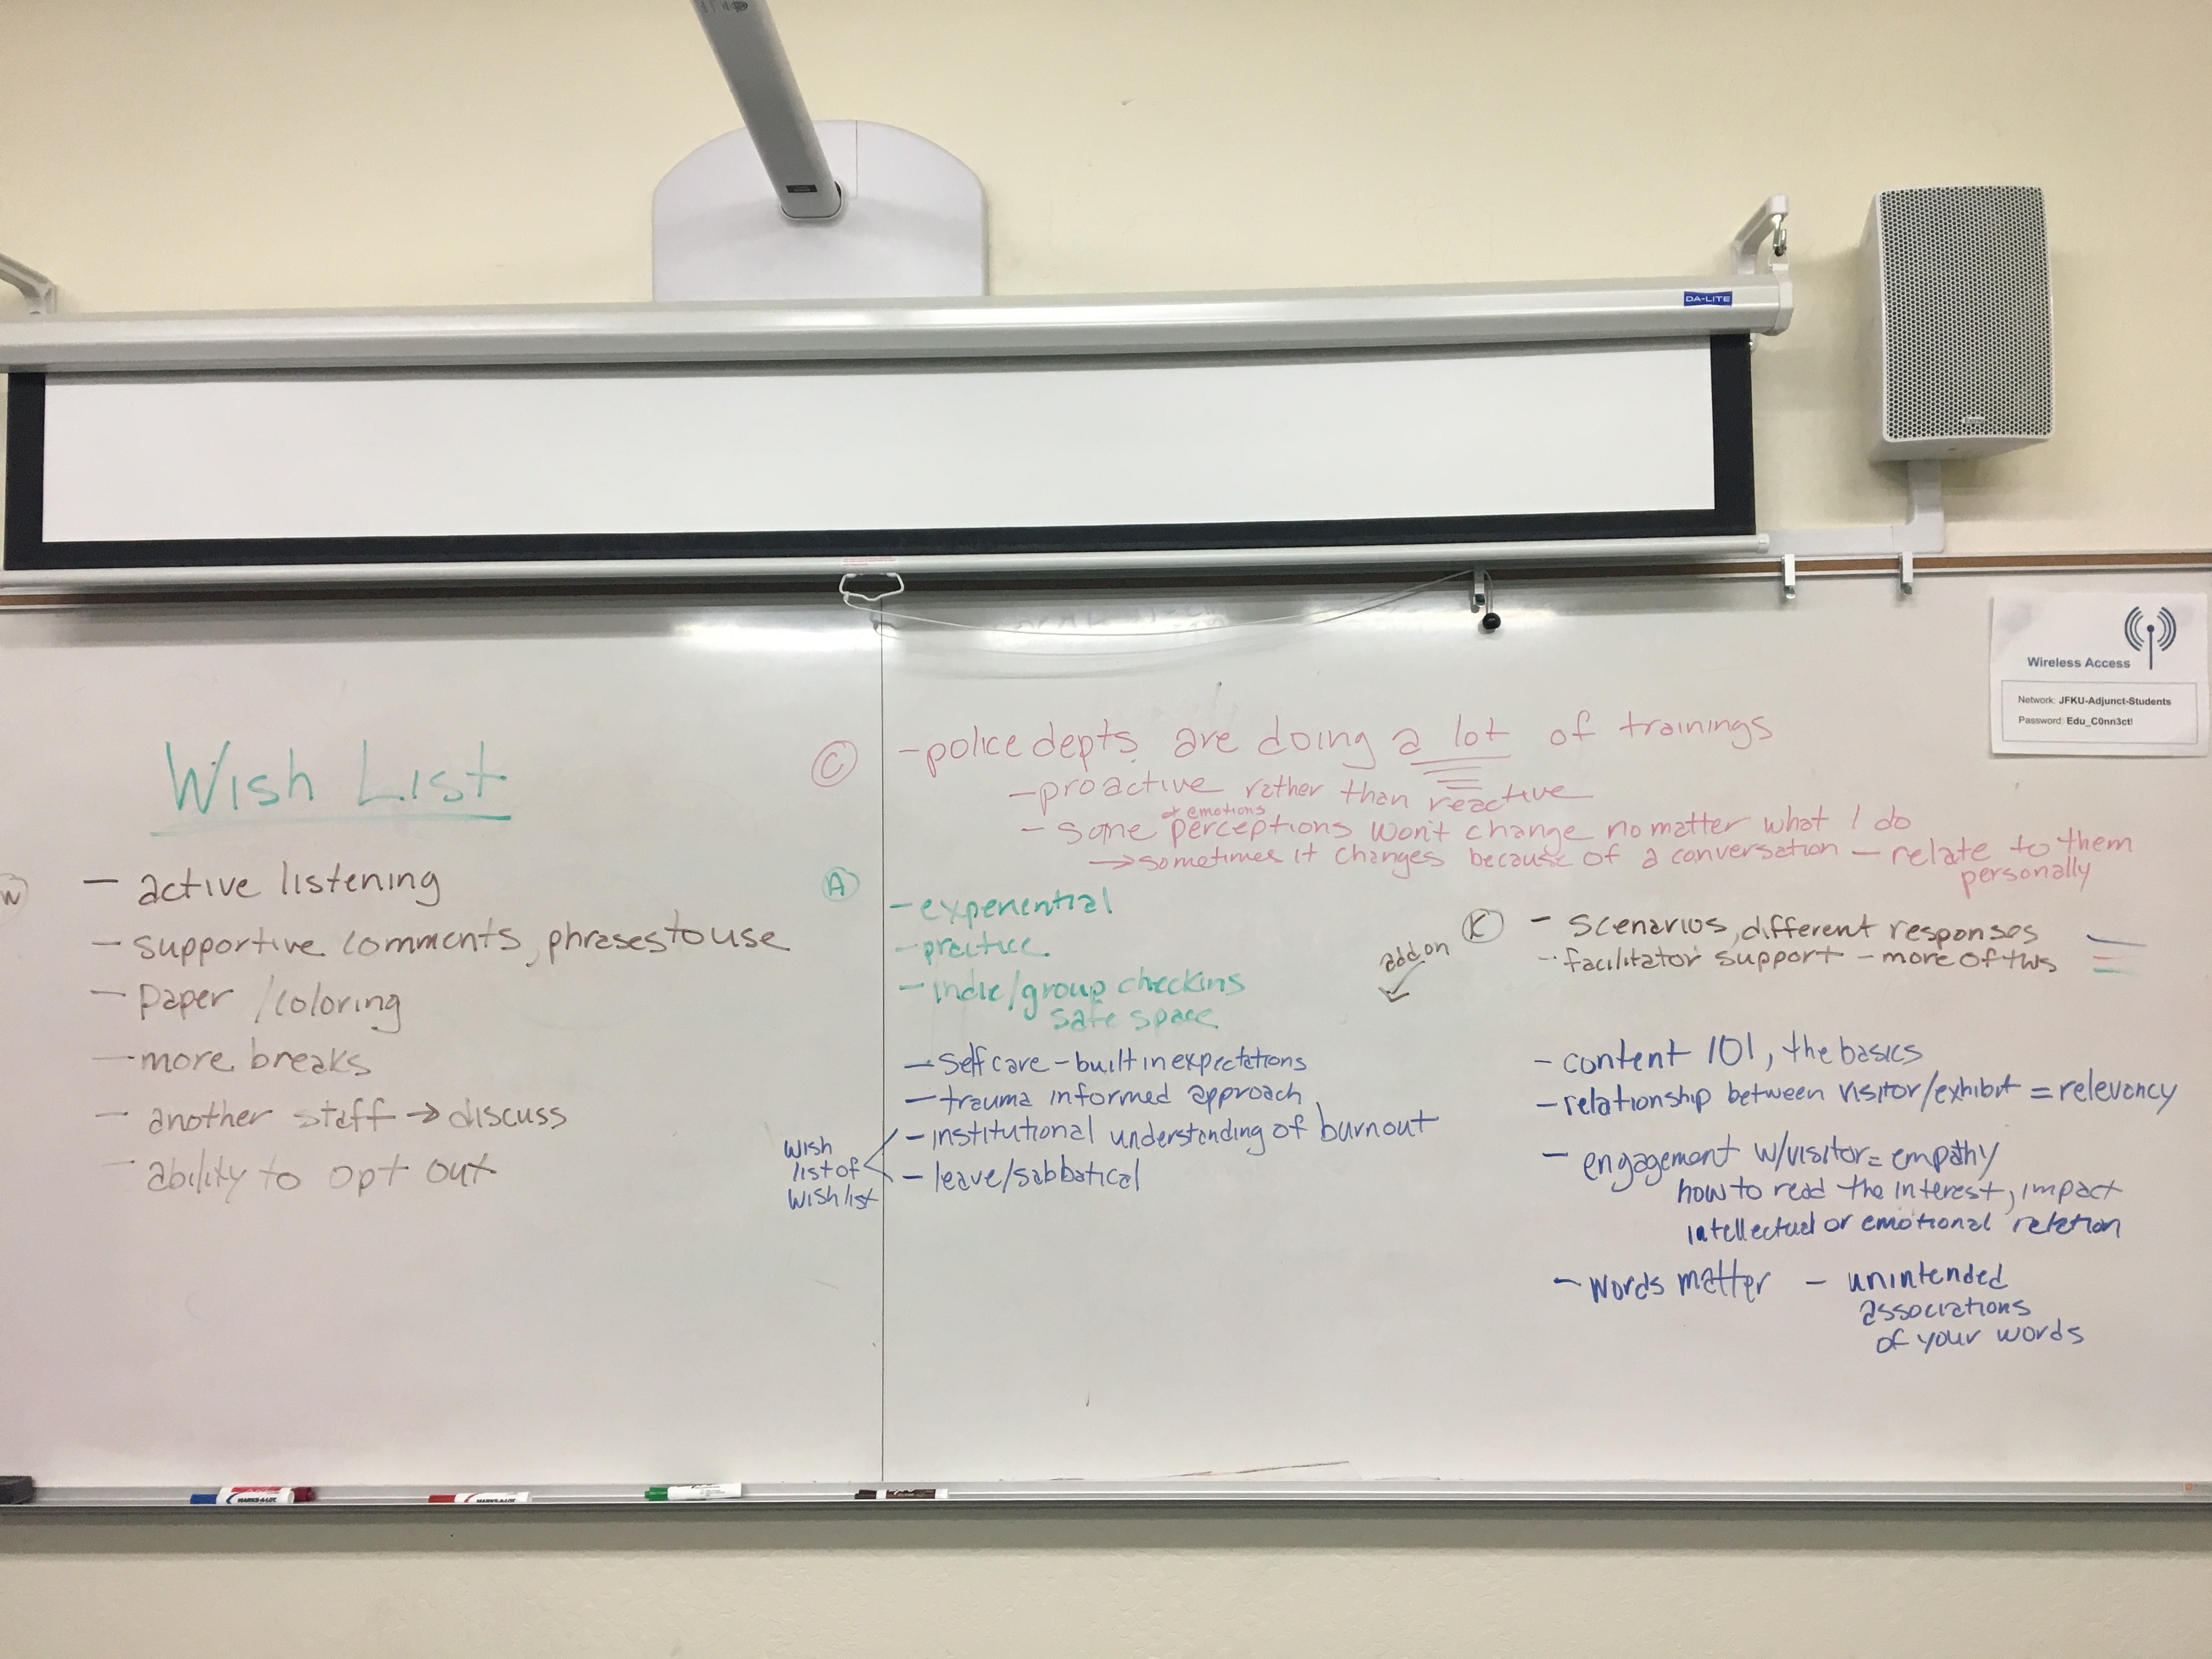 DA-LITE
Wireless Access
Network: JFKU-Adjunct-Students
Password: Edu_C0nn3ct!
Wish List
W
- active listening
- supportive comments, phrases to use
- paper / coloring
- more breaks
- another staff → discuss
- ability to opt out
C
- police depts. are doing a lot of trainings
- proactive rather than reactive
+ emotions
- some perceptions won't change no matter what I do
→ sometimes it changes because of a conversation - relate to them
personally
A
- experiential
- practice
- indie/group checkins
safe space
- self care - built in expectations
- trauma informed approach
- institutional understanding of burnout
- leave/sabbatical
wish
list of
wish list
add on
K
- scenarios, different responses
- facilitator support - more of this
- content 101, the basics
- relationship between visitor/exhibit = relevancy
- engagement w/visitor = empathy
how to read the interest, impact
intellectual or emotional relation
- words matter - unintended
associations
of your words
MARKS-A-LOT
MARKS-A-LOT